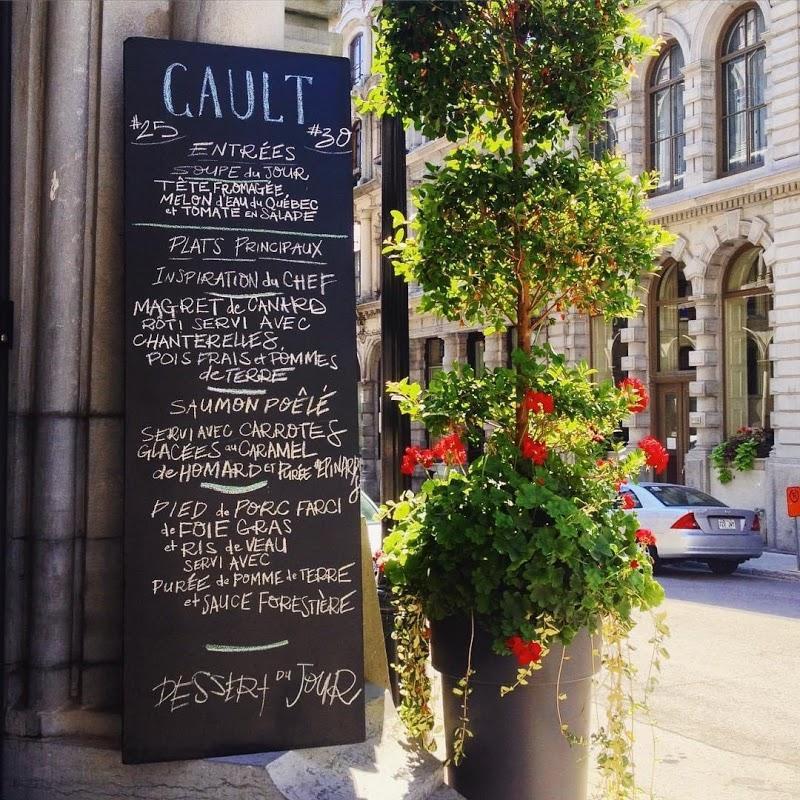 GAULT
#25 #30
ENTRÉES
SOUPE du JOUR
TÊTE FROMAGÉE,
MELON d'EAU du QUÉBEC
et TOMATE EN SALADE
PLATS PRINCIPAUX
INSPIRATION du CHEF
MAGRET de CANARD
RÔTI SERVI AVEC
CHANTERELLES,
POIS FRAIS et POMMES
de TERRE
SAUMON POÊLÉ
SERVI AVEC CARROTES
GLACÉES au CARAMEL
de HOMARD ET PURÉE d'ÉPINARDS
PIED de PORC FARCI
de FOIE GRAS
et RIS de VEAU
SERVI AVEC
PURÉE de POMME de TERRE
et SAUCE FORESTIÈRE
DESSERT DU JOUR